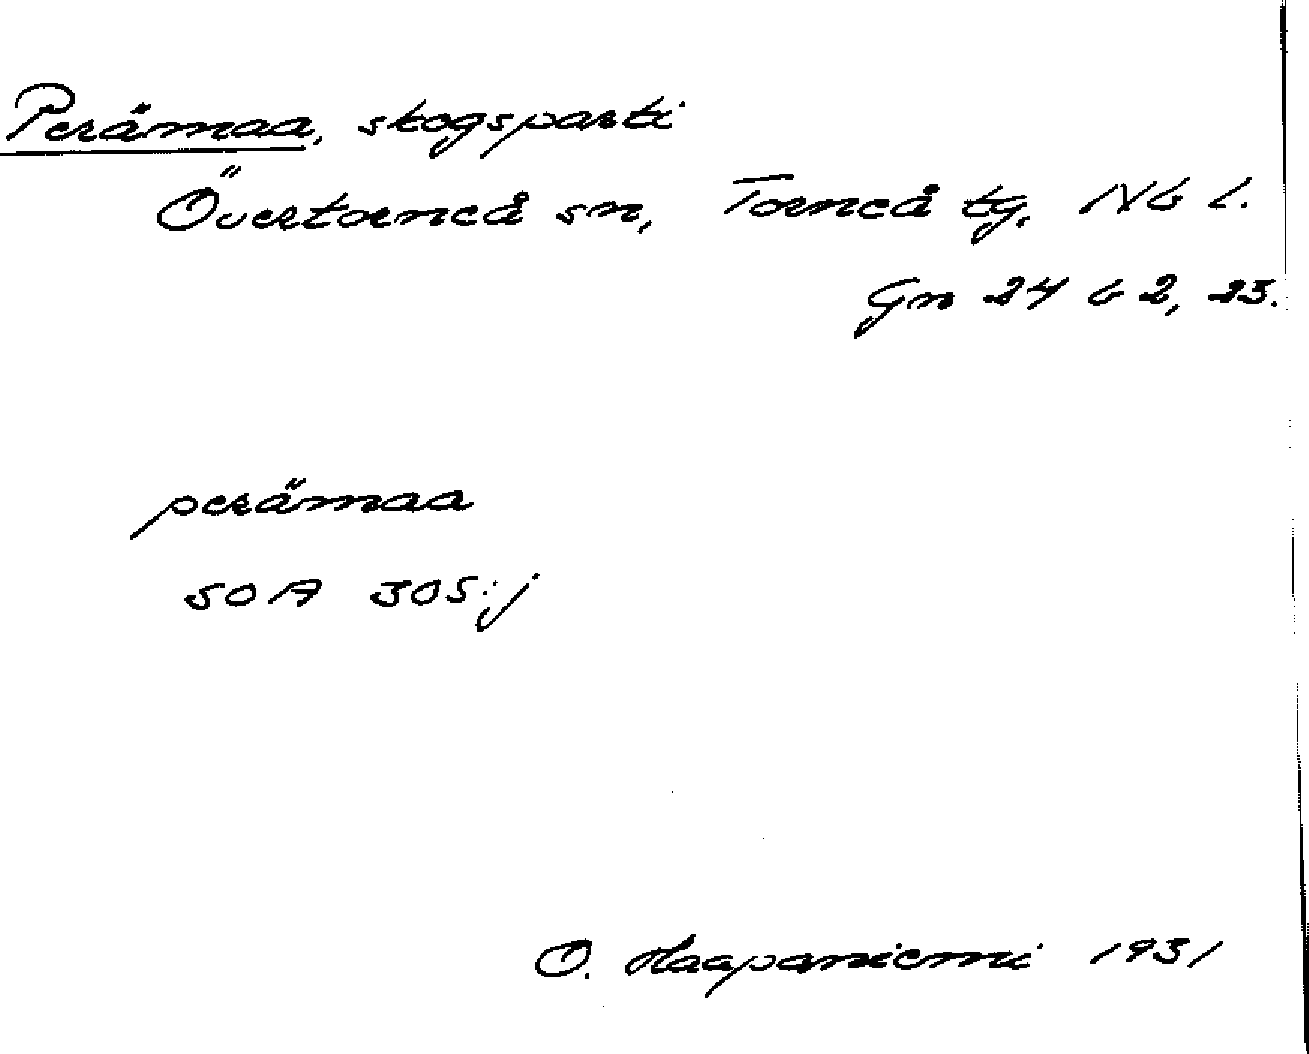 Perämaa, skogsparti
Övertorneå sn, Torneå tg, Nb l.
Gn 24 b 2, 23.
perämaa
SOA 305:j
O. Haapaniemi 1931